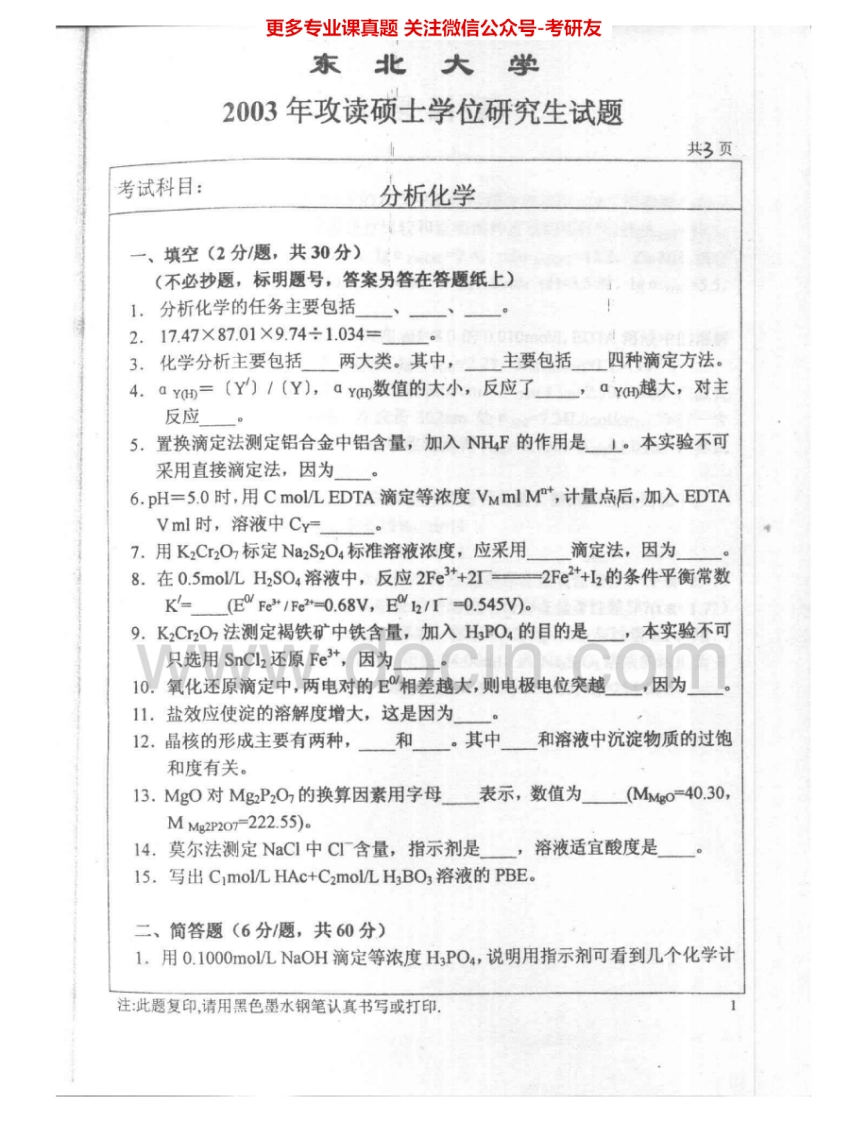 更多专业课真题 关注微信公众号-考研友
东 北 大 学
2003 年攻读硕士学位研究生试题
共3页
考试科目:
分析化学
一、填空（2 分/题，共 30 分）
（不必抄题，标明题号，答案另答在答题纸上）
1．分析化学的任务主要包括____、____、____。
2．17.47×87.01×9.74÷1.034=_____。
3．化学分析主要包括____两大类。其中，____主要包括____四种滴定方法。
4．α Y(H)=〔Y′〕/〔Y〕，α Y(H)数值的大小，反应了____，α Y(H)越大，对主
反应____。
5．置换滴定法测定铝合金中铝含量，加入 NH₄F 的作用是____。本实验不可
采用直接滴定法，因为____。
6. pH＝5.0 时，用 C mol/L EDTA 滴定等浓度 V_M ml Mⁿ⁺，计量点后，加入 EDTA
V ml 时，溶液中 C_Y=______。
7．用 K₂Cr₂O₇ 标定 Na₂S₂O₄ 标准溶液浓度，应采用_____滴定法，因为_____。
8．在 0.5mol/L H₂SO₄ 溶液中，反应 2Fe³⁺+2I⁻═══2Fe²⁺+I₂ 的条件平衡常数
K′=____(E⁰′ Fe³⁺/Fe²⁺=0.68V，E⁰′ I₂/I⁻=0.545V)。
9．K₂Cr₂O₇ 法测定褐铁矿中铁含量，加入 H₃PO₄ 的目的是____，本实验不可
只选用 SnCl₂ 还原 Fe³⁺，因为____。
www.docin.com
10．氧化还原滴定中，两电对的 E⁰′相差越大，则电极电位突越____，因为____。
11．盐效应使淀的溶解度增大，这是因为____。
12．晶核的形成主要有两种，____和____。其中____和溶液中沉淀物质的过饱
和度有关。
13．MgO 对 Mg₂P₂O₇ 的换算因素用字母____表示，数值为_____(M_MgO=40.30，
M Mg2P2O7=222.55)。
14．莫尔法测定 NaCl 中 Cl⁻含量，指示剂是____，溶液适宜酸度是____。
15．写出 C₁mol/L HAc+C₂mol/L H₃BO₃ 溶液的 PBE。
二、简答题（6 分/题，共 60 分）
1．用 0.1000mol/L NaOH 滴定等浓度 H₃PO₄，说明用指示剂可看到几个化学计
注:此题复印,请用黑色墨水钢笔认真书写或打印.
1